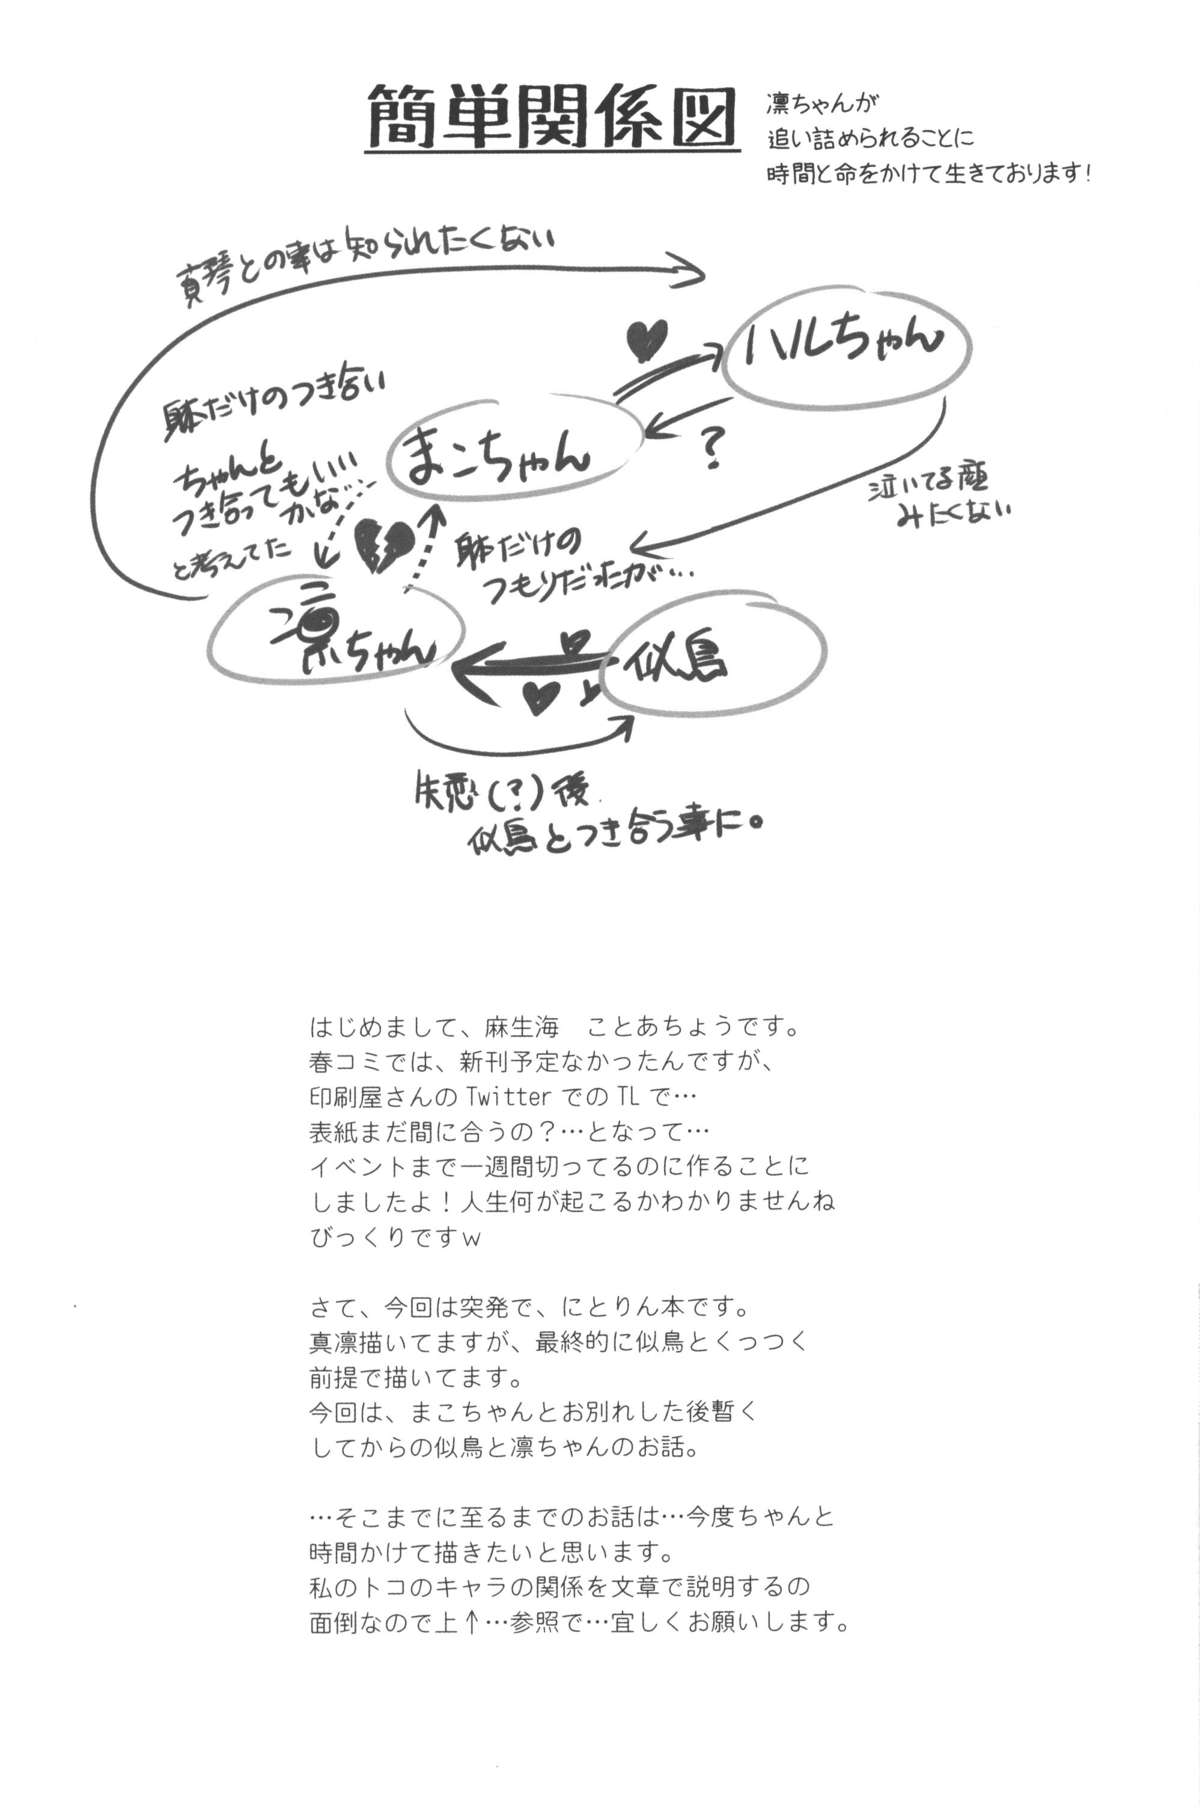 簡単関係図
凛ちゃんが
追い詰められることに
時間と命をかけて生きております!
真琴との事は知られたくない
ハルちゃん
躰だけのつき合い
まこちゃん
?
ちゃんと
つき合ってもいい
かな…
と考えてた
泣いてる顔
みたくない
躰だけの
つもりだったが…
凛ちゃん
似鳥
失恋(?)後
似鳥とつき合う事に。
はじめまして、麻生海　ことあちょうです。
春コミでは、新刊予定なかったんですが、
印刷屋さんの Twitter での TL で…
表紙まだ間に合うの?…となって…
イベントまで一週間切ってるのに作ることに
しましたよ!人生何が起こるかわかりませんね
びっくりですｗ
さて、今回は突発で、にとりん本です。
真凛描いてますが、最終的に似鳥とくっつく
前提で描いてます。
今回は、まこちゃんとお別れした後暫く
してからの似鳥と凛ちゃんのお話。
…そこまでに至るまでのお話は…今度ちゃんと
時間かけて描きたいと思います。
私のトコのキャラの関係を文章で説明するの
面倒なので上↑…参照で…宜しくお願いします。